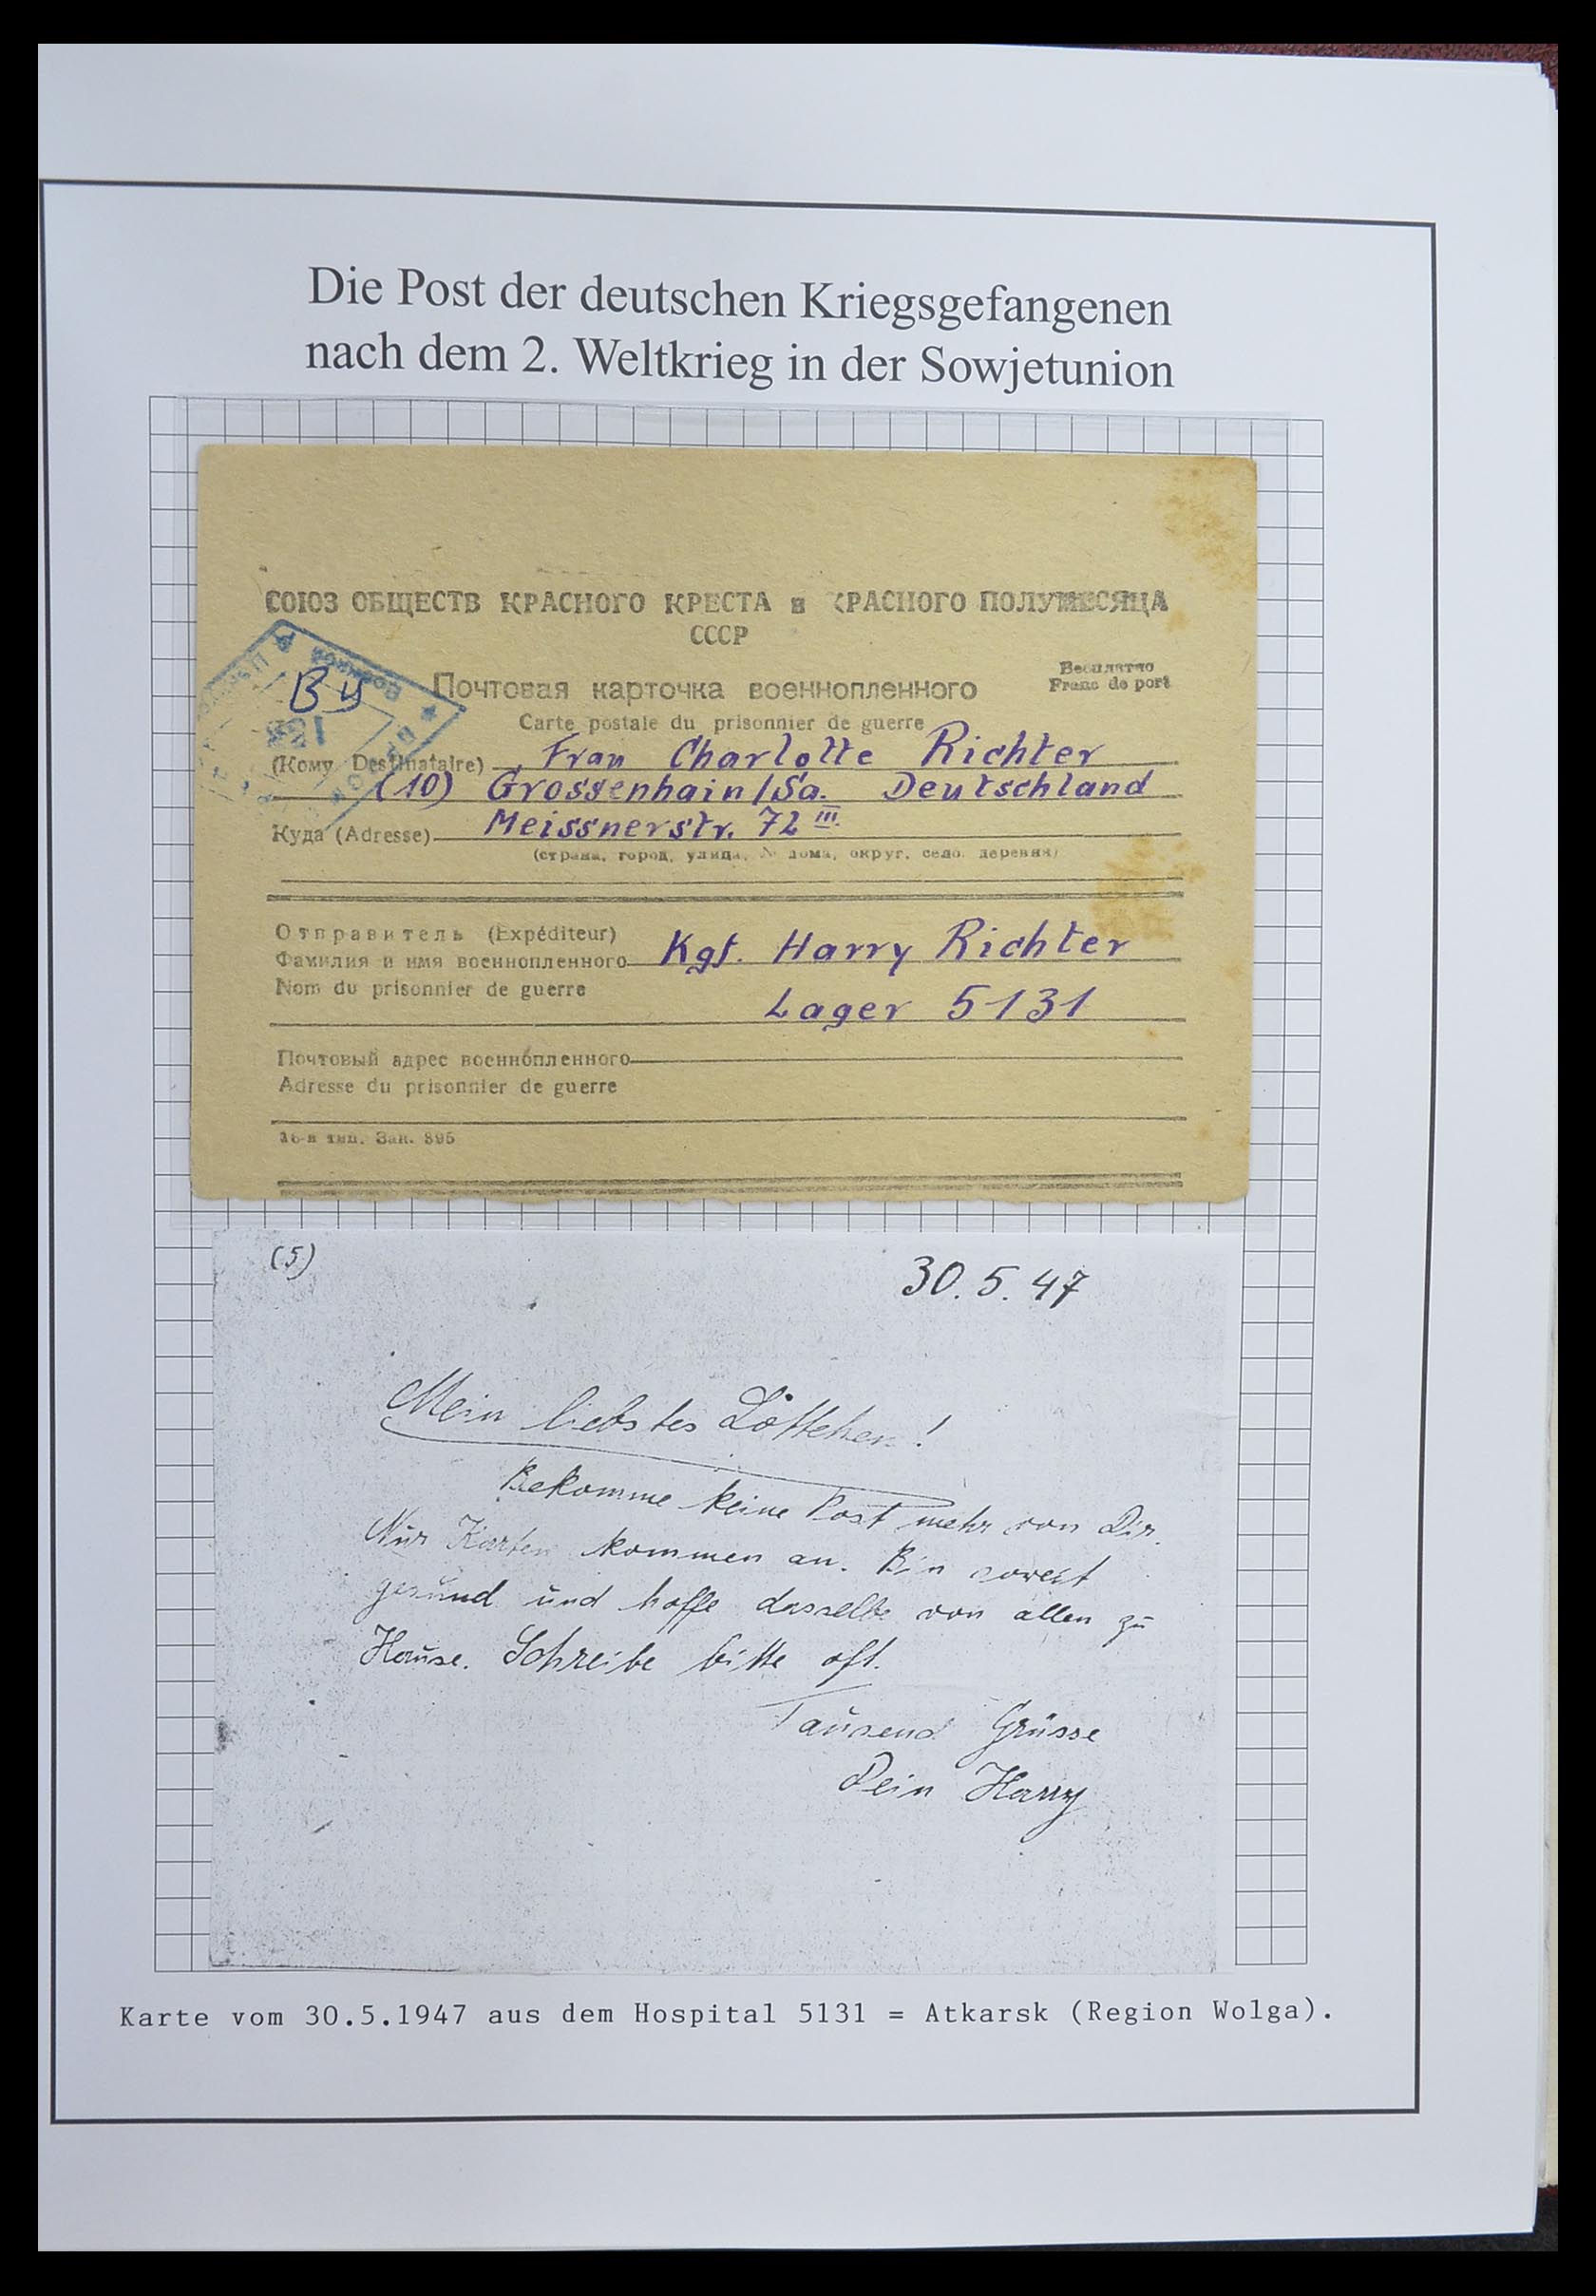 Die Post der deutschen Kriegsgefangenen
nach dem 2. Weltkrieg in der Sowjetunion
СОЮЗ ОБЩЕСТВ КРАСНОГО КРЕСТА и КРАСНОГО ПОЛУМЕСЯЦА
СССР
Бесплатно
Franc de port
Почтовая карточка военнопленного
Carte postale du prisonnier de guerre
(Кому Destinataire) Frau Charlotte Richter
(10) Grossenhain/Sa. Deutschland
Куда (Adresse) Meissnerstr. 72 III.
(страна, город, улица, № дома, округ, село, деревня)
Отправитель (Expéditeur)
Фамилия и имя военнопленного Kgf. Harry Richter
Nom du prisonnier de guerre
Lager 5131
Почтовый адрес военнопленного
Adresse du prisonnier de guerre
16-я тип. Зак. 895
(5)
30.5.47
Mein liebstes Lottchen!
Bekomme keine Post mehr von Dir.
Nur Karten kommen an. Bin soweit
gesund und hoffe dasselbe von allen zu
Hause. Schreibe bitte oft.
Tausend Grüsse
Dein Harry
Karte vom 30.5.1947 aus dem Hospital 5131 = Atkarsk (Region Wolga).